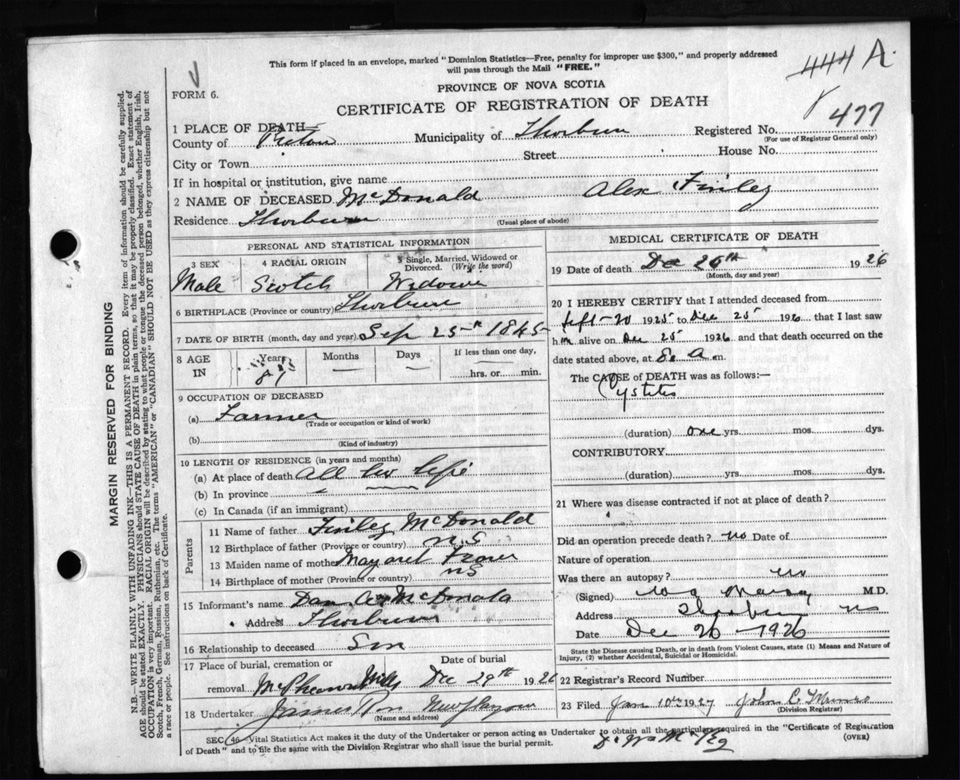 This form if placed in an envelope, marked "Dominion Statistics—Free, penalty for improper use $300," and properly addressed
will pass through the Mail "FREE."
444 A.
477
FORM 6.
PROVINCE OF NOVA SCOTIA
CERTIFICATE OF REGISTRATION OF DEATH
1 PLACE OF DEATH
County of Pictou Municipality of Thorburn Registered No.
(For use of Registrar General only)
City or Town Street House No.
If in hospital or institution, give name
2 NAME OF DECEASED McDonald Alex Finley
Residence Thorburn (Usual place of abode)
PERSONAL AND STATISTICAL INFORMATION
3 SEX 4 RACIAL ORIGIN 5 Single, Married, Widowed or Divorced. (Write the word)
Male Scotch Widower
6 BIRTHPLACE (Province or country) Thorburn
7 DATE OF BIRTH (month, day and year) Sep 25th 1845
8 AGE IN Years Months Days If less than one day,
81 hrs. or min.
9 OCCUPATION OF DECEASED
(a) Farmer
(Trade or occupation or kind of work)
(b)
(Kind of industry)
10 LENGTH OF RESIDENCE (in years and months)
(a) At place of death all his life
(b) In province
(c) In Canada (if an immigrant)
Parents
11 Name of father Finley McDonald
12 Birthplace of father (Province or country) N.S
13 Maiden name of mother Margaret
14 Birthplace of mother (Province or country) NS
15 Informant's name Dan A McDonald
Address Thorburn
16 Relationship to deceased Son
17 Place of burial, cremation or removal Date of burial
Mills Dec 29th 1926
18 Undertaker James New Glasgow
(Name and address)
MEDICAL CERTIFICATE OF DEATH
19 Date of death Dec 26th 1926
(Month, day and year)
20 I HEREBY CERTIFY that I attended deceased from
Sept-20 1925 to Dec 25 1926 that I last saw
him alive on Dec 25 1926 and that death occurred on the
date stated above, at a m.
The CAUSE of DEATH was as follows:—
Cystitis
(duration) one yrs. mos. dys.
CONTRIBUTORY
(duration) yrs. mos. dys.
21 Where was disease contracted if not at place of death?
Did an operation precede death? no Date of
Nature of operation
Was there an autopsy? no
(Signed) M.D.
Address Thorburn NS
Date Dec 26 - 1926
State the Disease causing Death, or in death from Violent Causes, state (1) Means and Nature of
Injury, (2) whether Accidental, Suicidal or Homicidal.
22 Registrar's Record Number
23 Filed Jan 10th 1927 John C. Munro
(Division Registrar)
SEC. 46, Vital Statistics Act makes it the duty of the Undertaker or person acting as Undertaker to obtain all the particulars required in the "Certificate of Registration
of Death" and to file the same with the Division Registrar who shall issue the burial permit. (OVER)
MARGIN RESERVED FOR BINDING
N.B.—WRITE PLAINLY WITH UNFADING INK—THIS IS A PERMANENT RECORD. Every item of information should be carefully supplied.
AGE should be stated EXACTLY. PHYSICIANS should STATE CAUSE OF DEATH in plain terms, so that it may be properly classified. Exact statement of
OCCUPATION is very important. RACIAL ORIGIN will be described by stating to what people or tongue the deceased person belonged, whether English, Irish,
Scotch, French, German, Russian, Ruthenian, etc. The terms "AMERICAN" or "CANADIAN" SHOULD NOT BE USED as they express citizenship but not
a race or people. See instructions on back of Certificate.